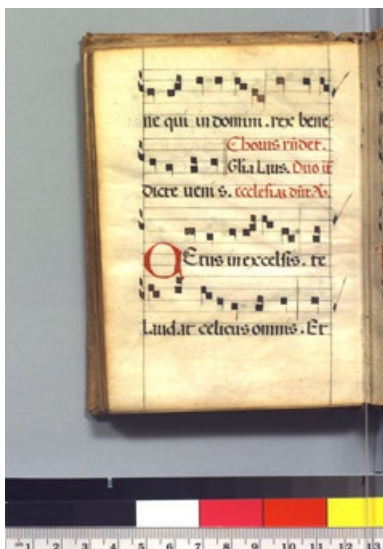 ne qui in domini. rex bene
Chorus rñdet.
Glia Laus. Duo it
dicte uenis. ecclesiaz dñt
Cetus in excelsis. te
Laudat celicus omnis. Et
1 2 3 4 5 6 7 8 9 10 11 12 13